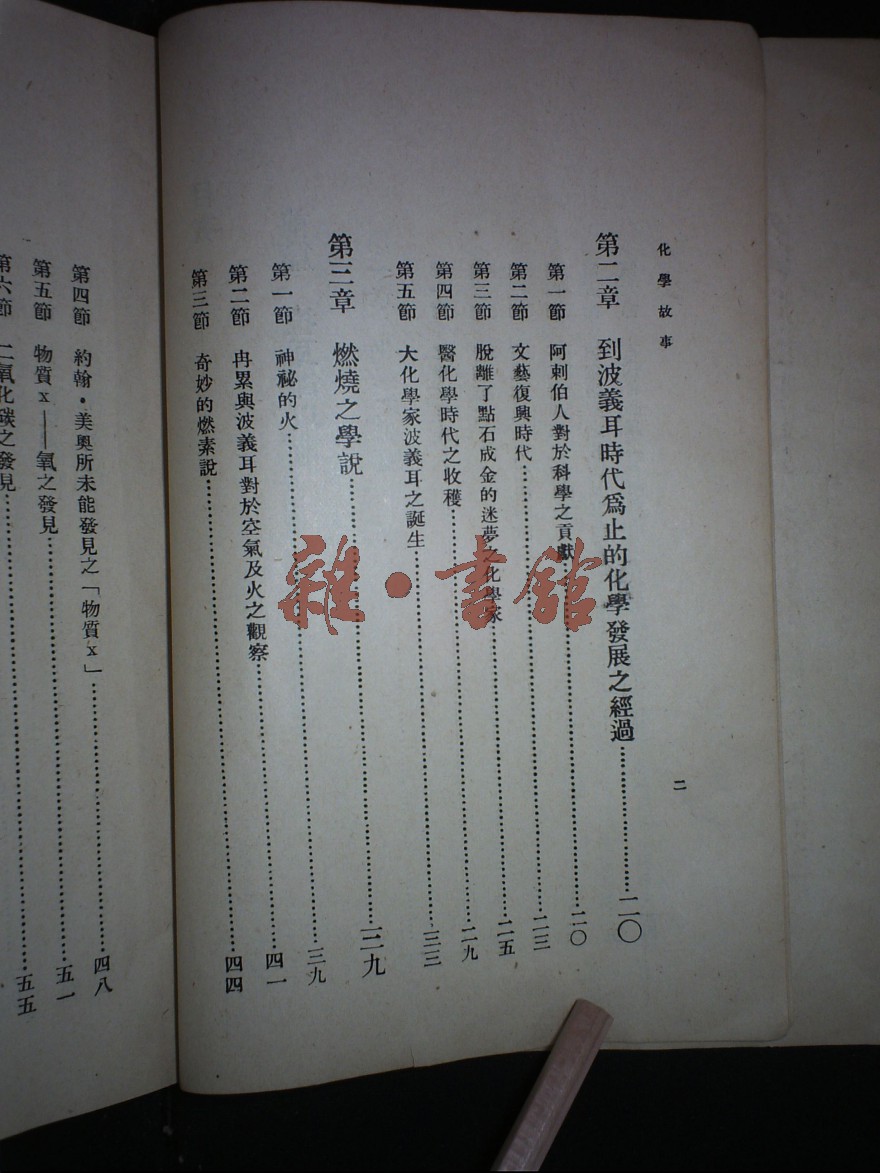 化學故事
二
第二章 到波義耳時代爲止的化學發展之經過……二〇
第一節 阿剌伯人對於科學之貢獻……二〇
第二節 文藝復興時代……二三
第三節 脫離了點石成金的迷夢之化學家……二五
第四節 醫化學時代之收穫……二九
第五節 大化學家波義耳之誕生……三三
第三章 燃燒之學說……三九
第一節 神祕的火……三九
第二節 冉累與波義耳對於空氣及火之觀察……四一
第三節 奇妙的燃素說……四四
第四節 約翰·美奧所未能發見之「物質x」……四八
第五節 物質x——氧之發見……五一
第六節 二氧化碳之發見……五五
雜·書館